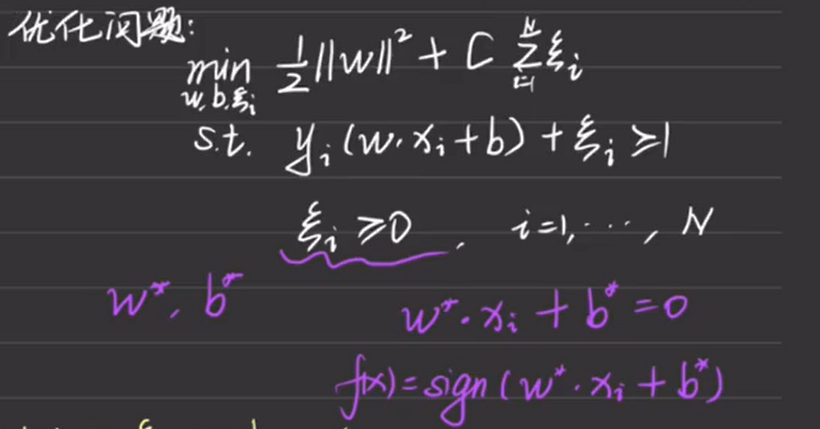 优化问题:
min 1/2 ||w||² + C Σ ξᵢ
w,b,ξᵢ i=1 N
s.t. yᵢ(w·xᵢ+b) + ξᵢ ≥1
ξᵢ ≥0, i=1,···, N
w*, b* w*·xᵢ + b* = 0
f(x)=sign(w*·xᵢ + b*)